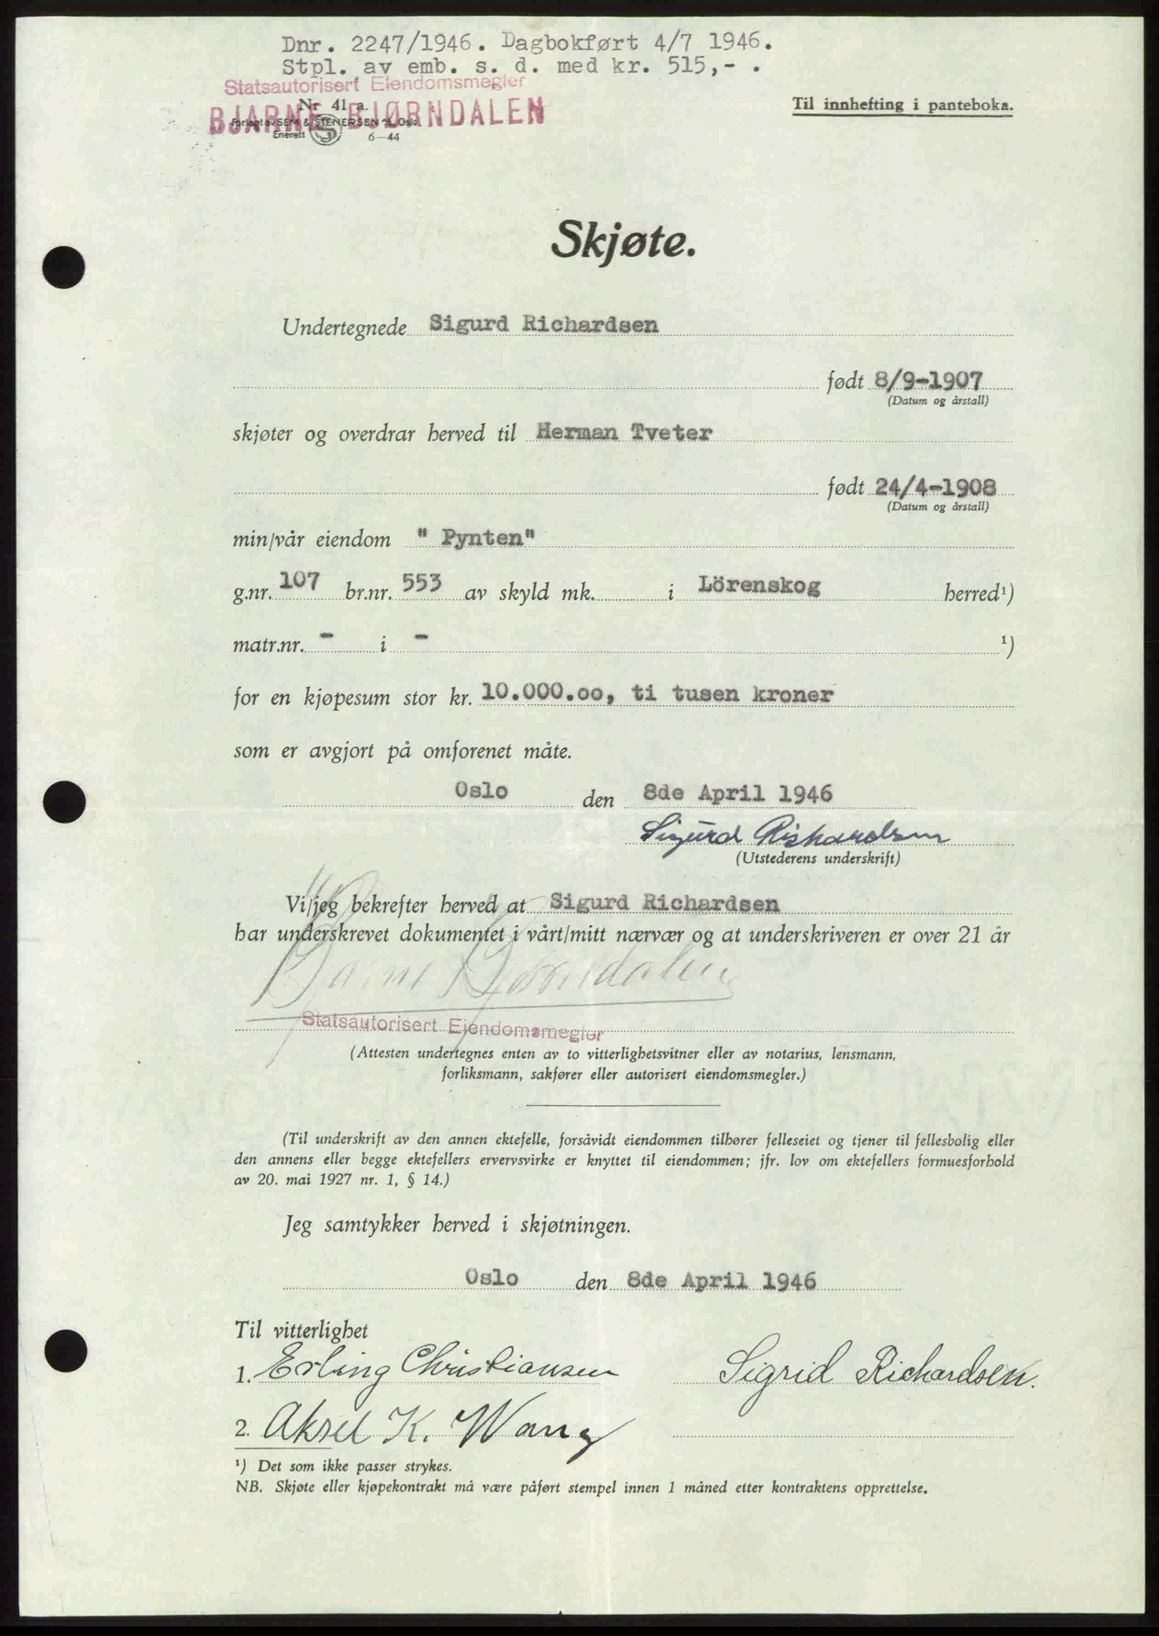 Dnr. 2247/1946. Dagbokført 4/7 1946.
Stpl. av emb. s. d. med kr. 515,- .
Statsautorisert Eiendomsmegler
BJARNE BJØRNDALEN
Nr. 41 a.
Forlagt av SEM & STENERSEN A/S, Oslo.
Enerett S 6-44
Til innhefting i panteboka.
Skjøte.
Undertegnede Sigurd Richardsen
født 8/9-1907
(Datum og årstall)
skjøter og overdrar herved til Herman Tveter
født 24/4-1908
(Datum og årstall)
min/vår eiendom " Pynten"
g.nr. 107 br.nr. 553 av skyld mk. i Lörenskog herred¹)
matr.nr. - i - ¹)
for en kjøpesum stor kr. 10.000.oo, ti tusen kroner
som er avgjort på omforenet måte.
Oslo den 8de April 1946
Sigurd Richardsen
(Utstederens underskrift)
Vi/jeg bekrefter herved at Sigurd Richardsen
har underskrevet dokumentet i vårt/mitt nærvær og at underskriveren er over 21 år
Bjarne Bjørndalen
Statsautorisert Eiendomsmegler
(Attesten undertegnes enten av to vitterlighetsvitner eller av notarius, lensmann,
forliksmann, sakfører eller autorisert eiendomsmegler.)
(Til underskrift av den annen ektefelle, forsåvidt eiendommen tilhører felleseiet og tjener til fellesbolig eller
den annens eller begge ektefellers ervervsvirke er knyttet til eiendommen; jfr. lov om ektefellers formuesforhold
av 20. mai 1927 nr. 1, § 14.)
Jeg samtykker herved i skjøtningen.
Oslo den 8de April 1946
Til vitterlighet
1. Erling Christiansen Sigrid Richardsen.
2. Aksel K. Wang
¹) Det som ikke passer strykes.
NB. Skjøte eller kjøpekontrakt må være påført stempel innen 1 måned etter kontraktens opprettelse.